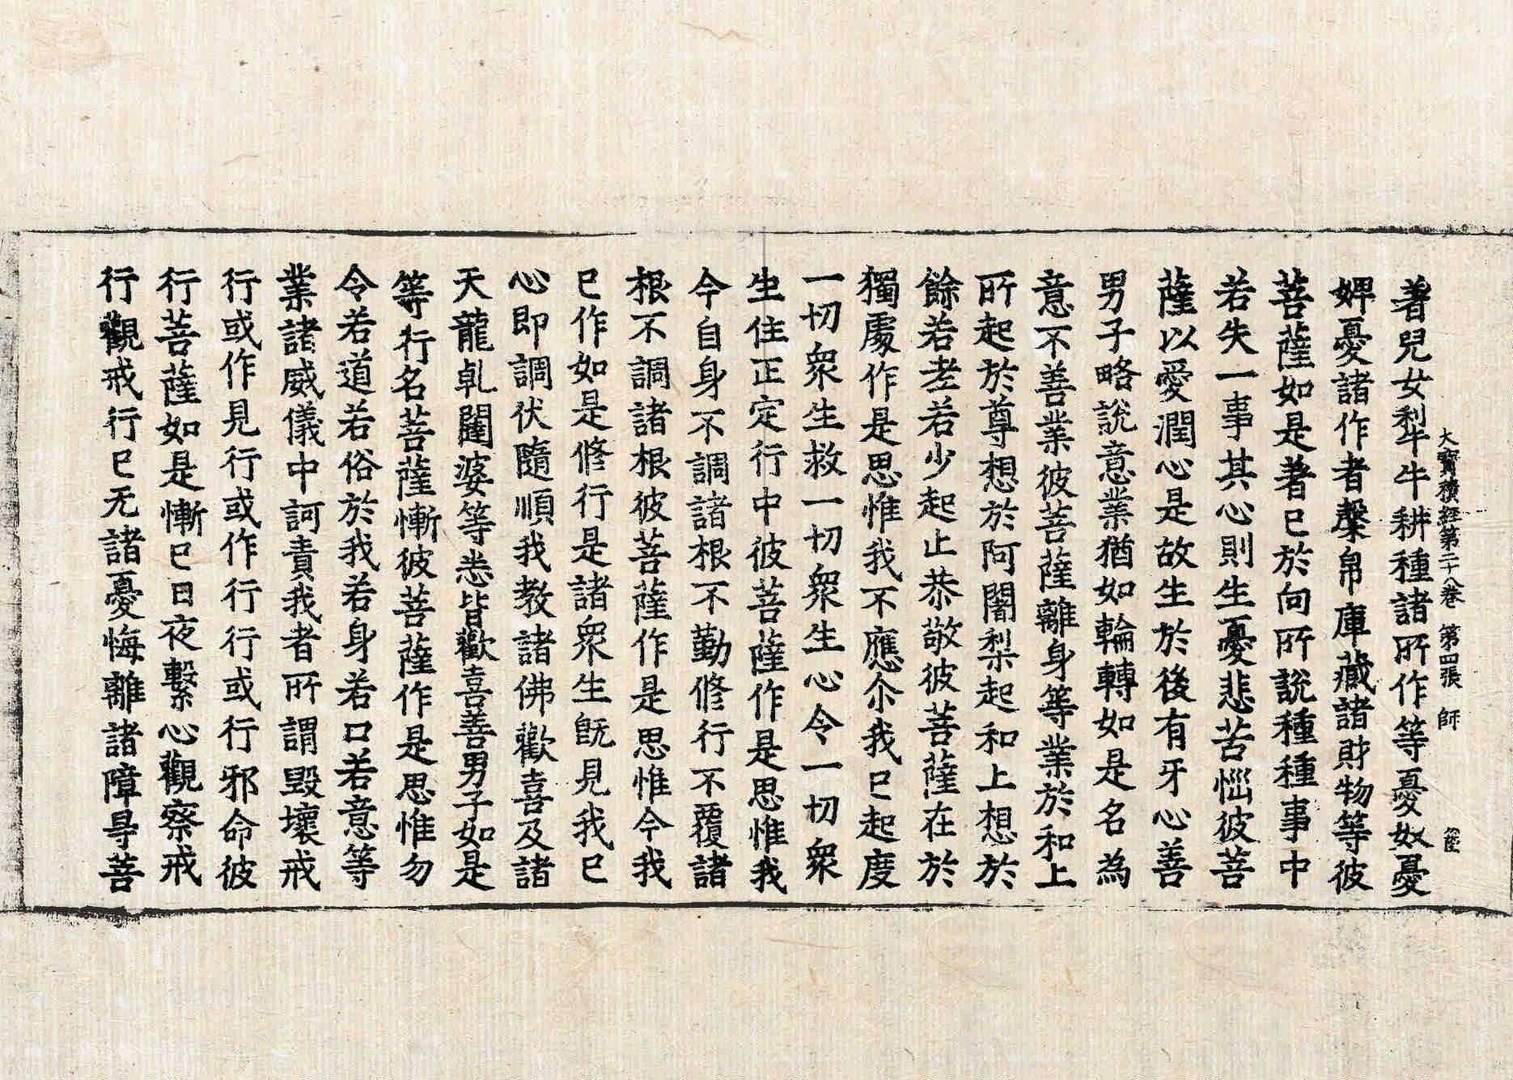 大寶積經第二十八卷　第四張　師
著兒女犁牛牛耕種諸所作等憂奴憂
婢憂諸作者槃帛庫藏諸財物等彼
菩薩如是著已於向所說種種事中
若失一事其心則生憂悲苦惱彼菩
薩以愛潤心是故生於後有牙心善
男子略說意業猶如輪轉如是名為
意不善業彼菩薩離身等業於和上
所起於尊想於阿闍梨起和上想於
餘若老若少起止恭敬彼菩薩在於
獨處作是思惟我不應尒我已起度
一切衆生救一切衆生心令一切衆
生住正定行中彼菩薩作是思惟我
今自身不調諸根不勤修行不覆諸
根不調諸根彼菩薩作是思惟今我
已作如是修行是諸衆生旣見我已
心即調伏隨順我教諸佛歡喜及諸
天龍乹闥婆等悉皆歡喜善男子如是
等行名菩薩慚彼菩薩作是思惟勿
令若道若俗於我若身若口若意等
業諸威儀中訶責我者所謂毀壞戒
行或作見行或作行行或行邪命彼
行菩薩如是慚已日夜繫心觀察戒
行觀戒行已无諸憂悔離諸障㝵菩